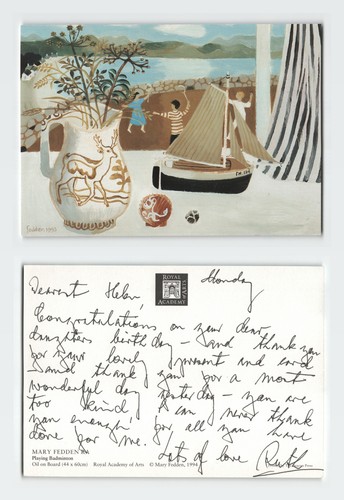 Fedden 1993
ROYAL
ACADEMY
OF ARTS
Monday
Dearest Helen
Congratulations on your dear
daughters birthday – and thank you
for your lovely present and card
and thank you for a most
wonderful day yesterday – you are
too kind I can never thank
you enough for all you have
done for me.
Lots of love Ruth
MARY FEDDEN RA
Playing Badminton
Oil on Board (44 x 60cm) Royal Academy of Arts © Mary Fedden, 1994